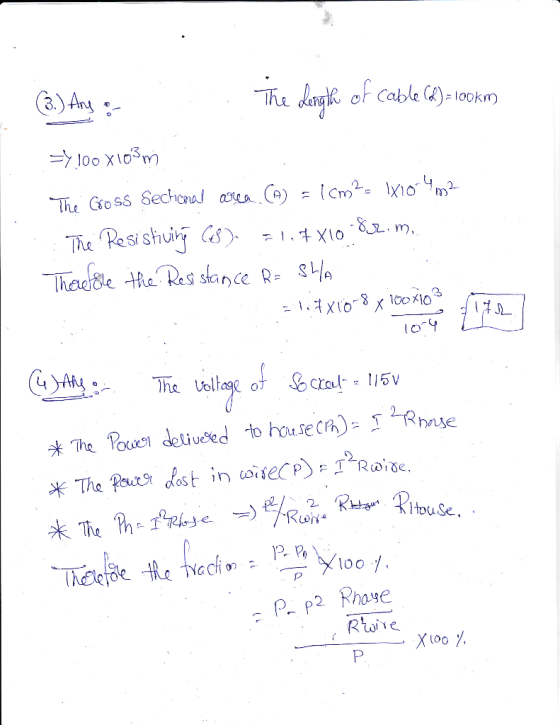 (3.) Ans :-
The Length of Cable (L) = 100km
=> 100 X10³m
The Cross Sectional area (A) = 1cm² = 1X10⁻⁴m²
The Resistivity (S). = 1.7 X10⁻⁸Ω.m.
Therefore the Resistance R = SL/A
= 1.7X10⁻⁸ X 100X10³ / 10⁻⁴ = 17Ω
(4) Ans :- The voltage of Socket = 115V
* The Power delivered to house (Ph) = I²Rhouse
* The Power Lost in wire (P) = I²Rwire.
* The Ph = I²Rhouse => P²/Rwire² RHouse.
Therefore the fraction = P-Ph / P X100 %.
= P - P² Rhouse / R²wire / P X100 %